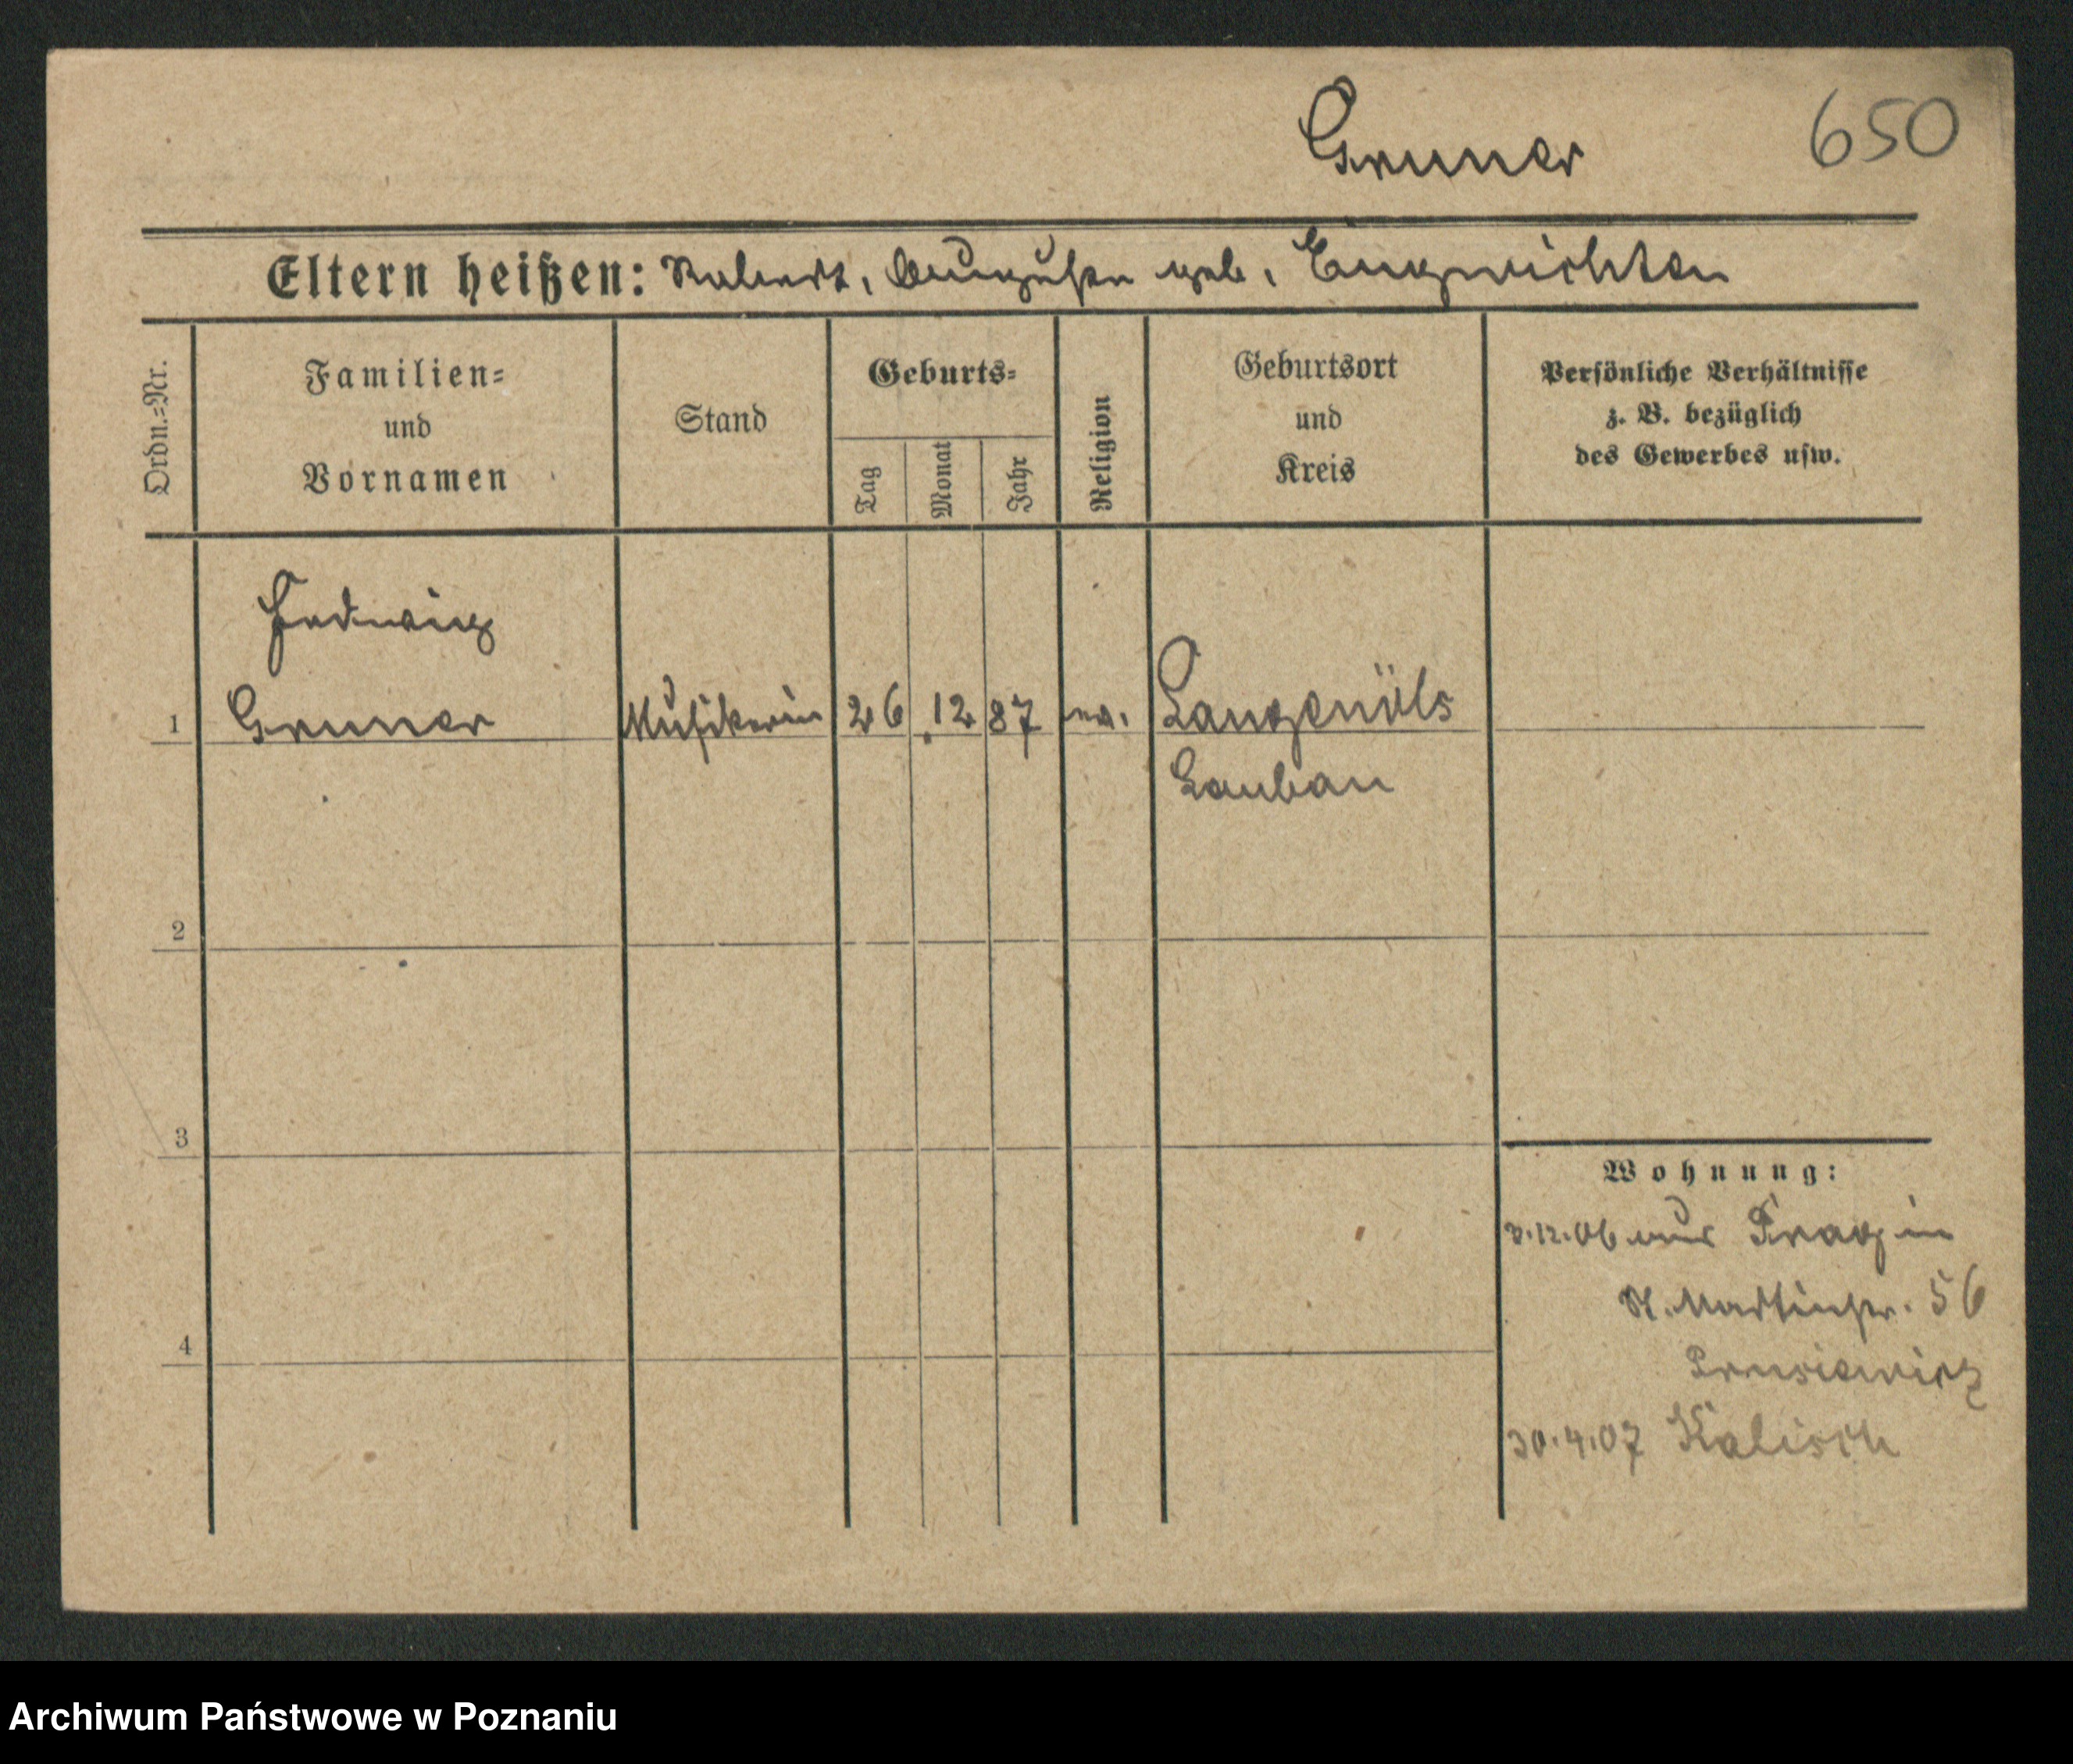 Gruner 650
Eltern heißen: Robert, Auguste geb.
Ordn.-Nr.
Familien-
und
Vornamen
Stand
Geburts-
Tag
Monat
Jahr
Religion
Geburtsort
und
Kreis
Persönliche Verhältnisse
z. B. bezüglich
des Gewerbes usw.
Hedwig
1 Gruner Musikerin 26. 12 87 ev. Langenöls
Lauban
2
3
4
Wohnung:
12.06 aus Prag in
St. Martinstr. 56
30.4.07 Kalisch
Archiwum Państwowe w Poznaniu